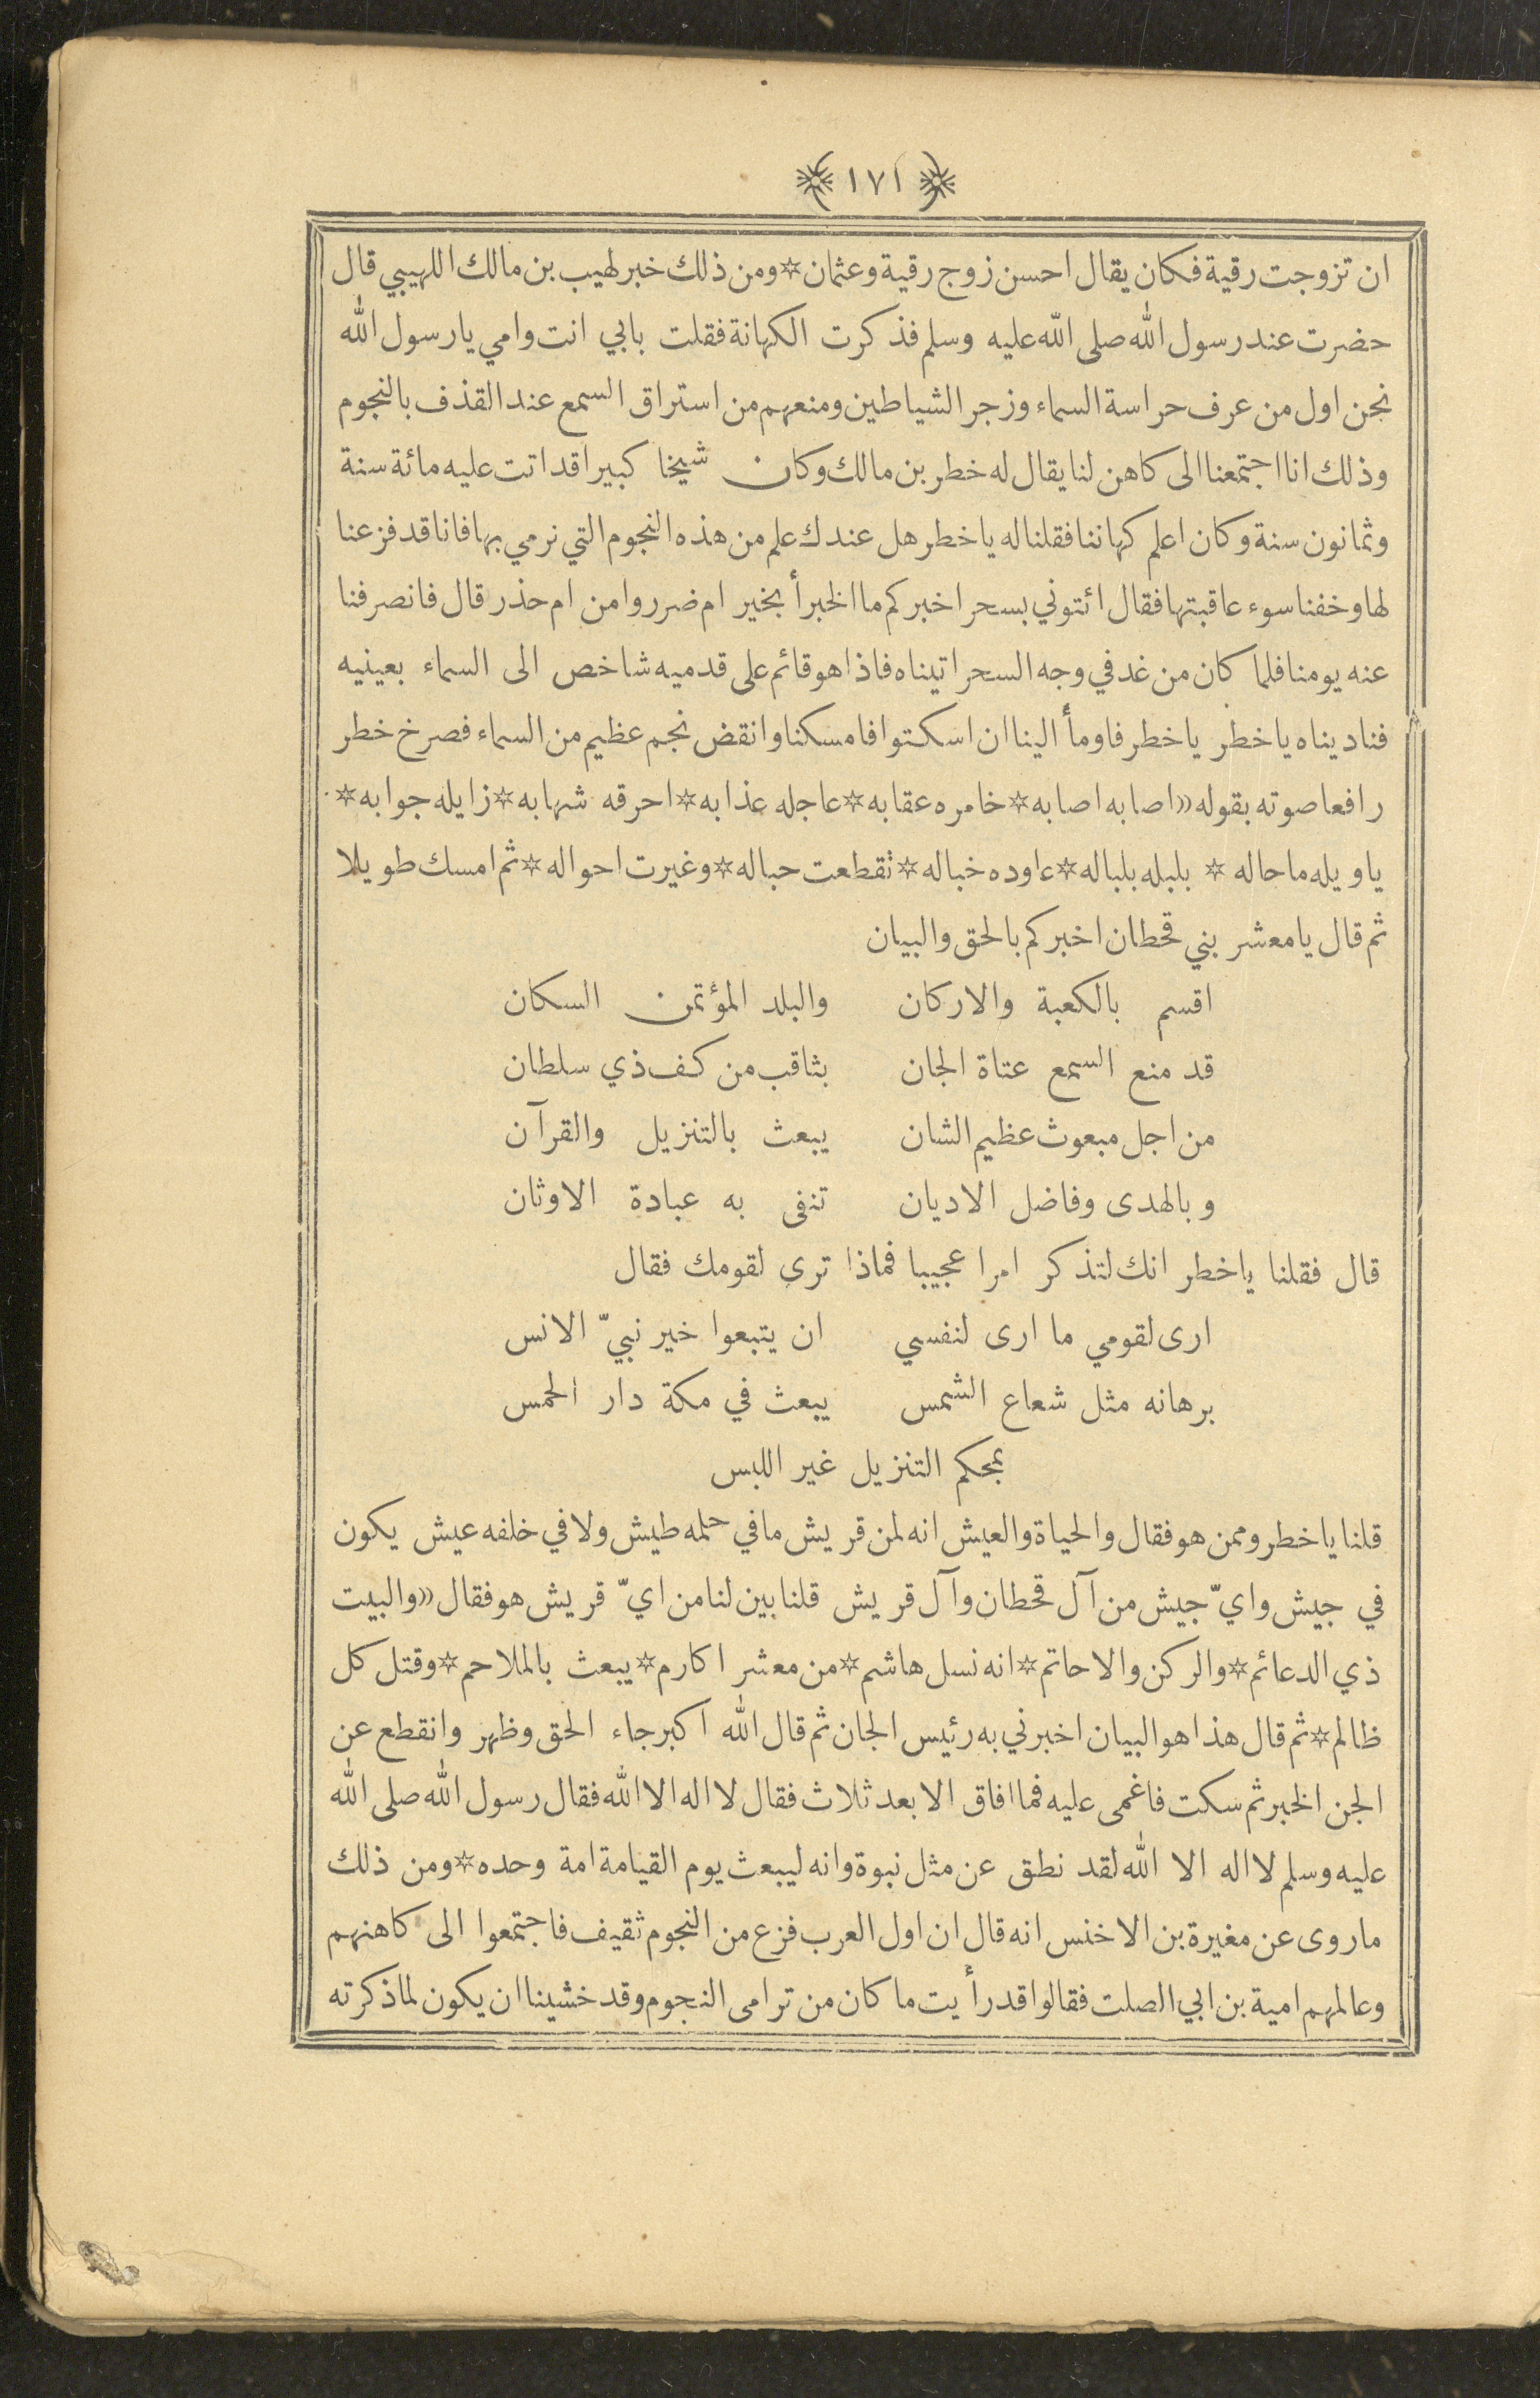 ﴿ ١٧١ ﴾
ان تزوجت رقية فكان يقال احسن زوج رقية وعثمان * ومن ذلك خبر لهيب بن مالك اللهيبي قال
حضرت عند رسول الله صلى الله عليه وسلم فذكرت الكهانة فقلت بابي انت وامي يا رسول الله
نحن اول من عرف حراسة السماء وزجر الشياطين ومنعهم من استراق السمع عند القذف بالنجوم
وذلك انا اجتمعنا الى كاهن لنا يقال له خطر بن مالك وكان شيخا كبيرا قد اتت عليه مائة سنة
وثمانون سنة وكان اعلم كهاننا فقلنا له يا خطر هل عندك علم من هذه النجوم التي نرمي بها فانا قد فزعنا
لها وخفنا سوء عاقبتها فقال ائتوني بسحر اخبركم ما الخبر أ بخير ام ضرر وامن ام حذر قال فانصرفنا
عنه يومنا فلما كان من غد في وجه السحر اتيناه فاذا هو قائم على قدميه شاخص الى السماء بعينيه
فناديناه يا خطر يا خطر فاومأ الينا ان اسكتوا فامسكنا وانقض نجم عظيم من السماء فصرخ خطر
رافعا صوته بقوله « اصابه اصابه * خامره عقابه * عاجله عذابه * احرقه شهابه * زايله جوابه *
يا ويله ما حاله * بلبله بلباله * عاوده خباله * تقطعت حباله * وغيرت احواله * ثم امسك طويلا
ثم قال يا معشر بني قحطان اخبركم بالحق والبيان
اقسم بالكعبة والاركان والبلد المؤتمن السكان
قد منع السمع عتاة الجان بثاقب من كف ذي سلطان
من اجل مبعوث عظيم الشان يبعث بالتنزيل والقرآن
وبالهدى وفاضل الاديان تنفى به عبادة الاوثان
قال فقلنا يا خطر انك لتذكر امرا عجيبا فماذا ترى لقومك فقال
ارى لقومي ما ارى لنفسي ان يتبعوا خير نبيّ الانس
برهانه مثل شعاع الشمس يبعث في مكة دار الحمس
بمحكم التنزيل غير اللبس
قلنا يا خطر وممن هو فقال والحياة والعيش انه لمن قريش ما في حلمه طيش ولا في خلفه عيش يكون
في جيش وايّ جيش من آل قحطان وآل قريش قلنا بين لنا من ايّ قريش هو فقال « والبيت
ذي الدعائم * والركن والاحاتم * انه نسل هاشم * من معشر اكارم * يبعث بالملاحم * وقتل كل
ظالم * ثم قال هذا هو البيان اخبرني به رئيس الجان ثم قال الله اكبر جاء الحق وظهر وانقطع عن
الجن الخبر ثم سكت فاغمى عليه فما افاق الا بعد ثلاث فقال لا اله الا الله فقال رسول الله صلى الله
عليه وسلم لا اله الا الله لقد نطق عن مثل نبوة وانه ليبعث يوم القيامة امة وحده * ومن ذلك
ما روى عن مغيرة بن الاخنس انه قال ان اول العرب فزع من النجوم ثقيف فاجتمعوا الى كاهنهم
وعالمهم امية بن ابي الصلت فقالوا قد رأيت ما كان من ترامى النجوم وقد خشينا ان يكون لما ذكرته